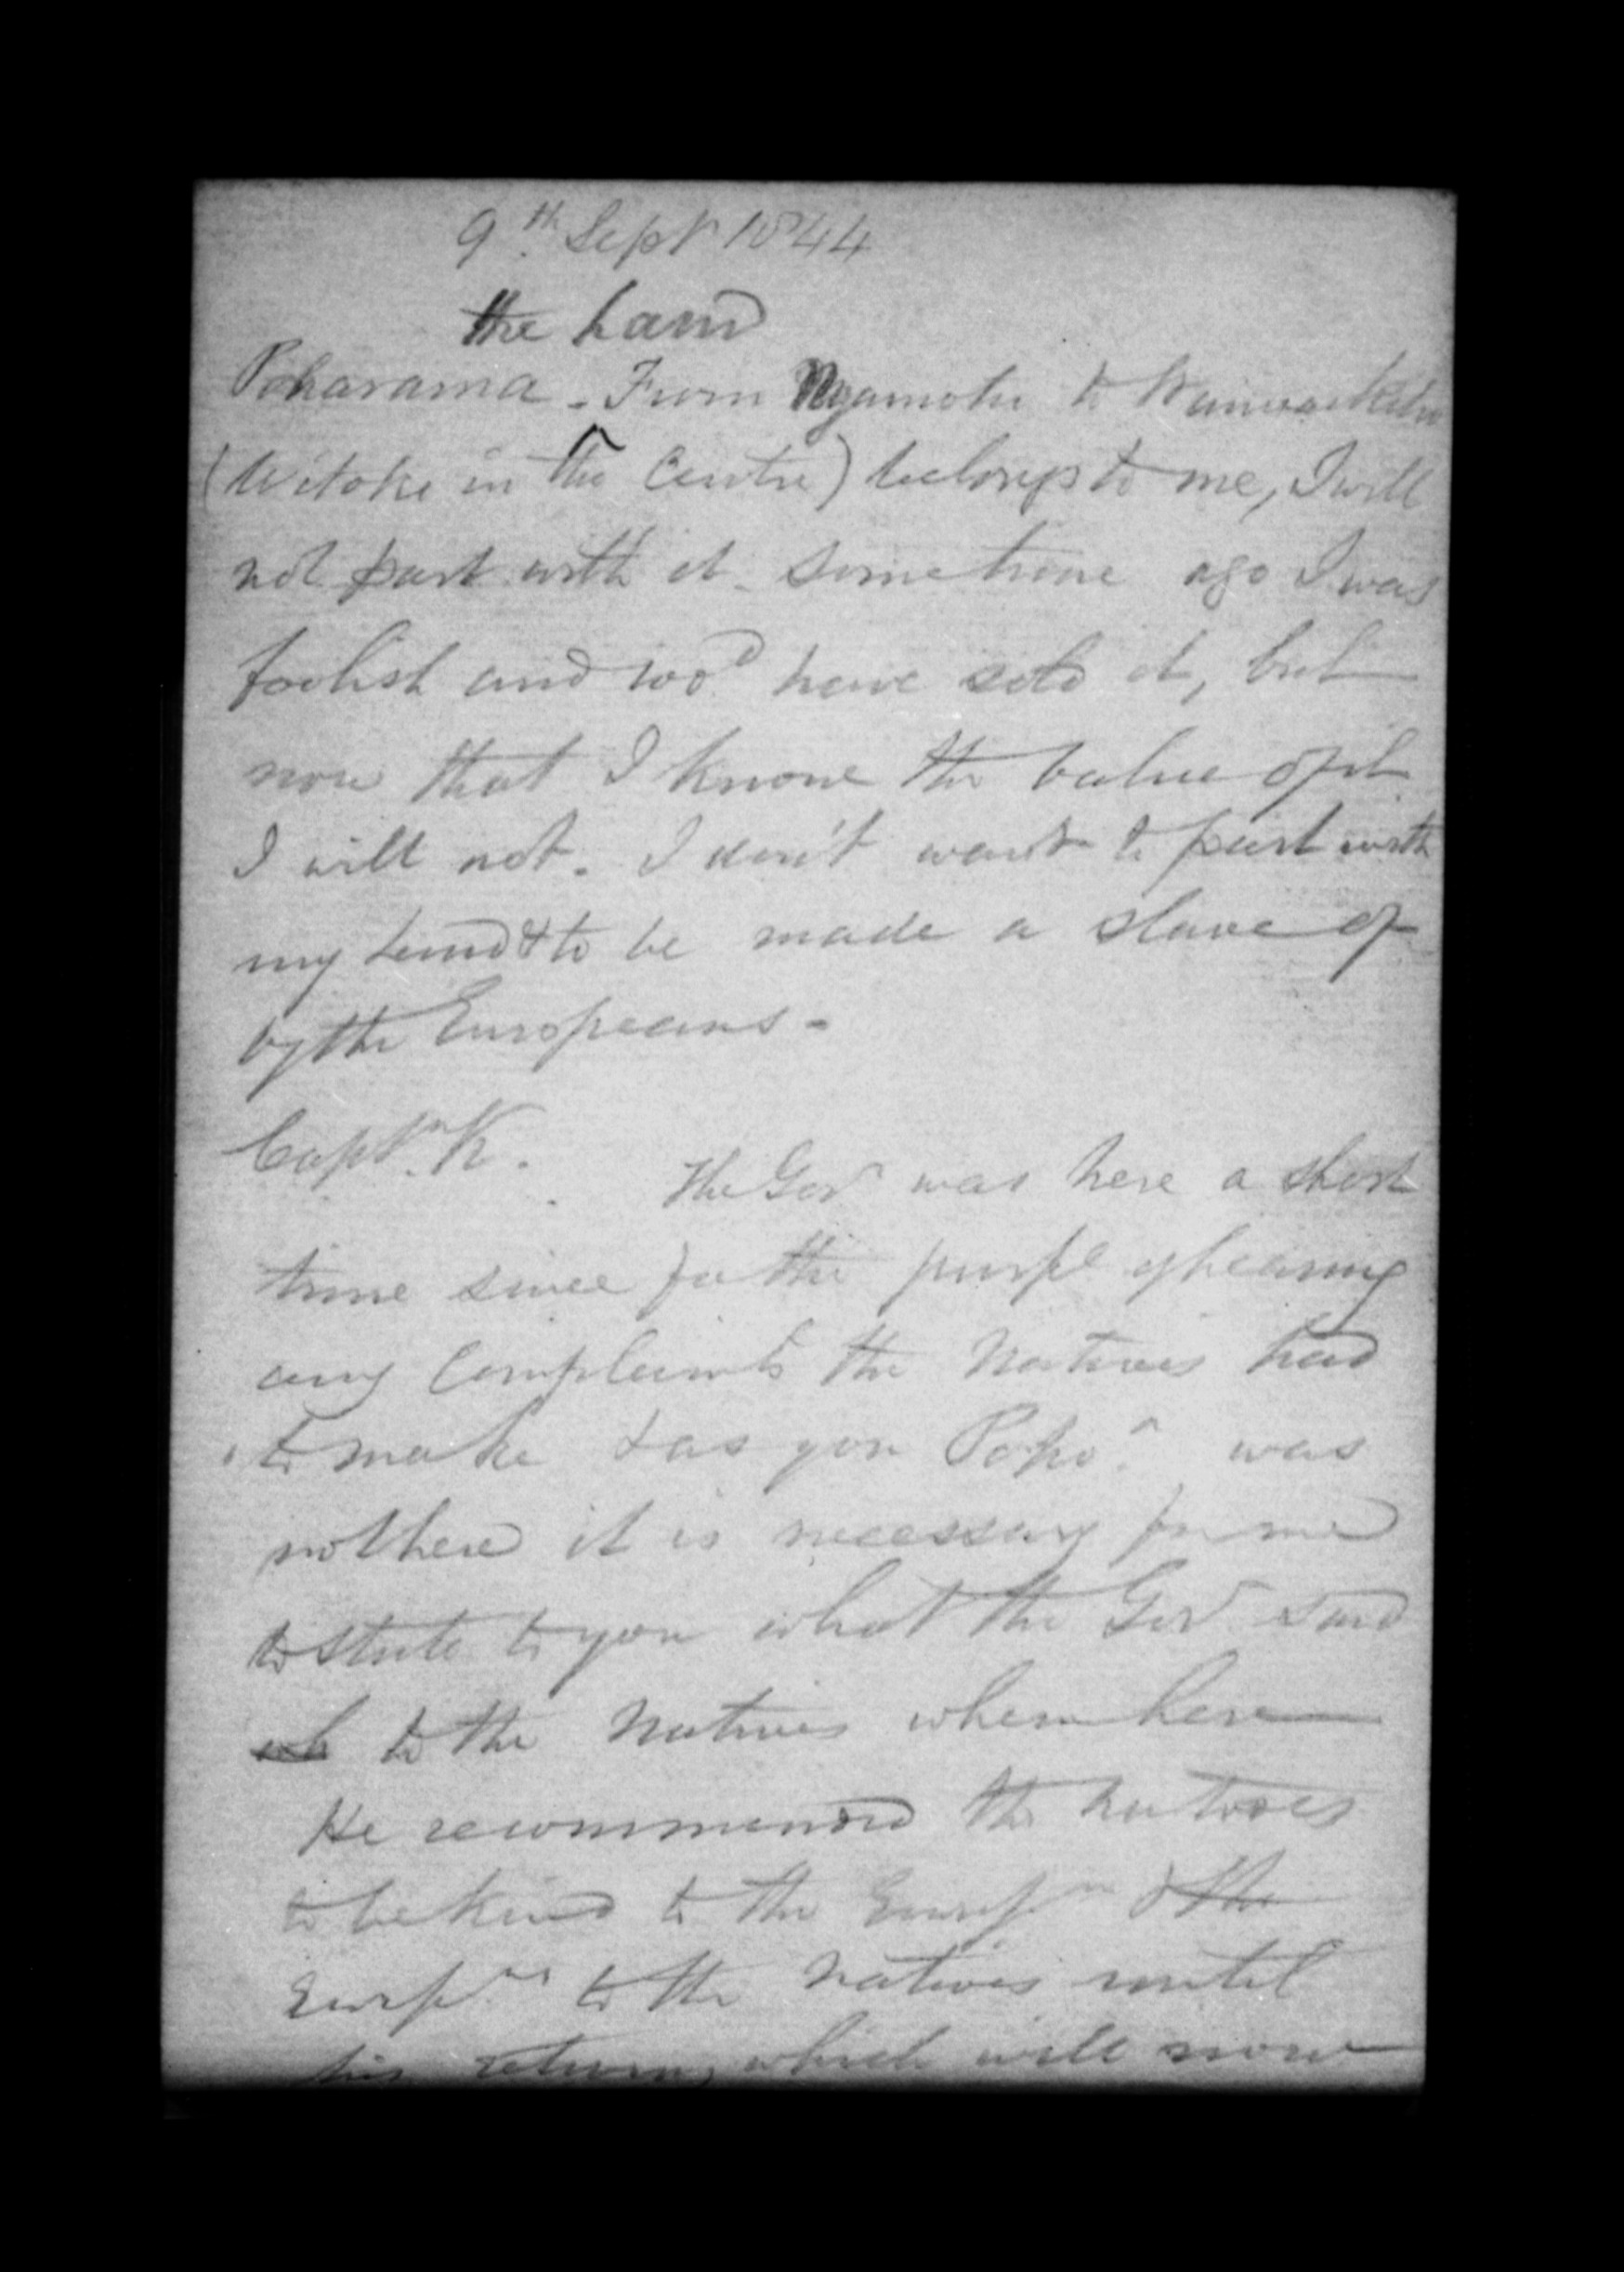 9th Sept 1844
the Land
Poharama - From Ngamotu to
(Witoke in the Centre) belongs to me, I will
not part with it - Some time ago I was
foolish and wod have sold it, but
now that I know the value of it
I will not. I don't want to part with
my land & to be made a slave of
by the Europeans -
Captn. K.
The Govr was here a short
time since for the purpe of hearing
any Complaints the Natives had
to make & as you was
not here it is necessary for me
to state to you what the Govr said
to the Natives when here
He recommended the natives
to be kind to the Europn & the
Europns to the Natives until
his return, which will now